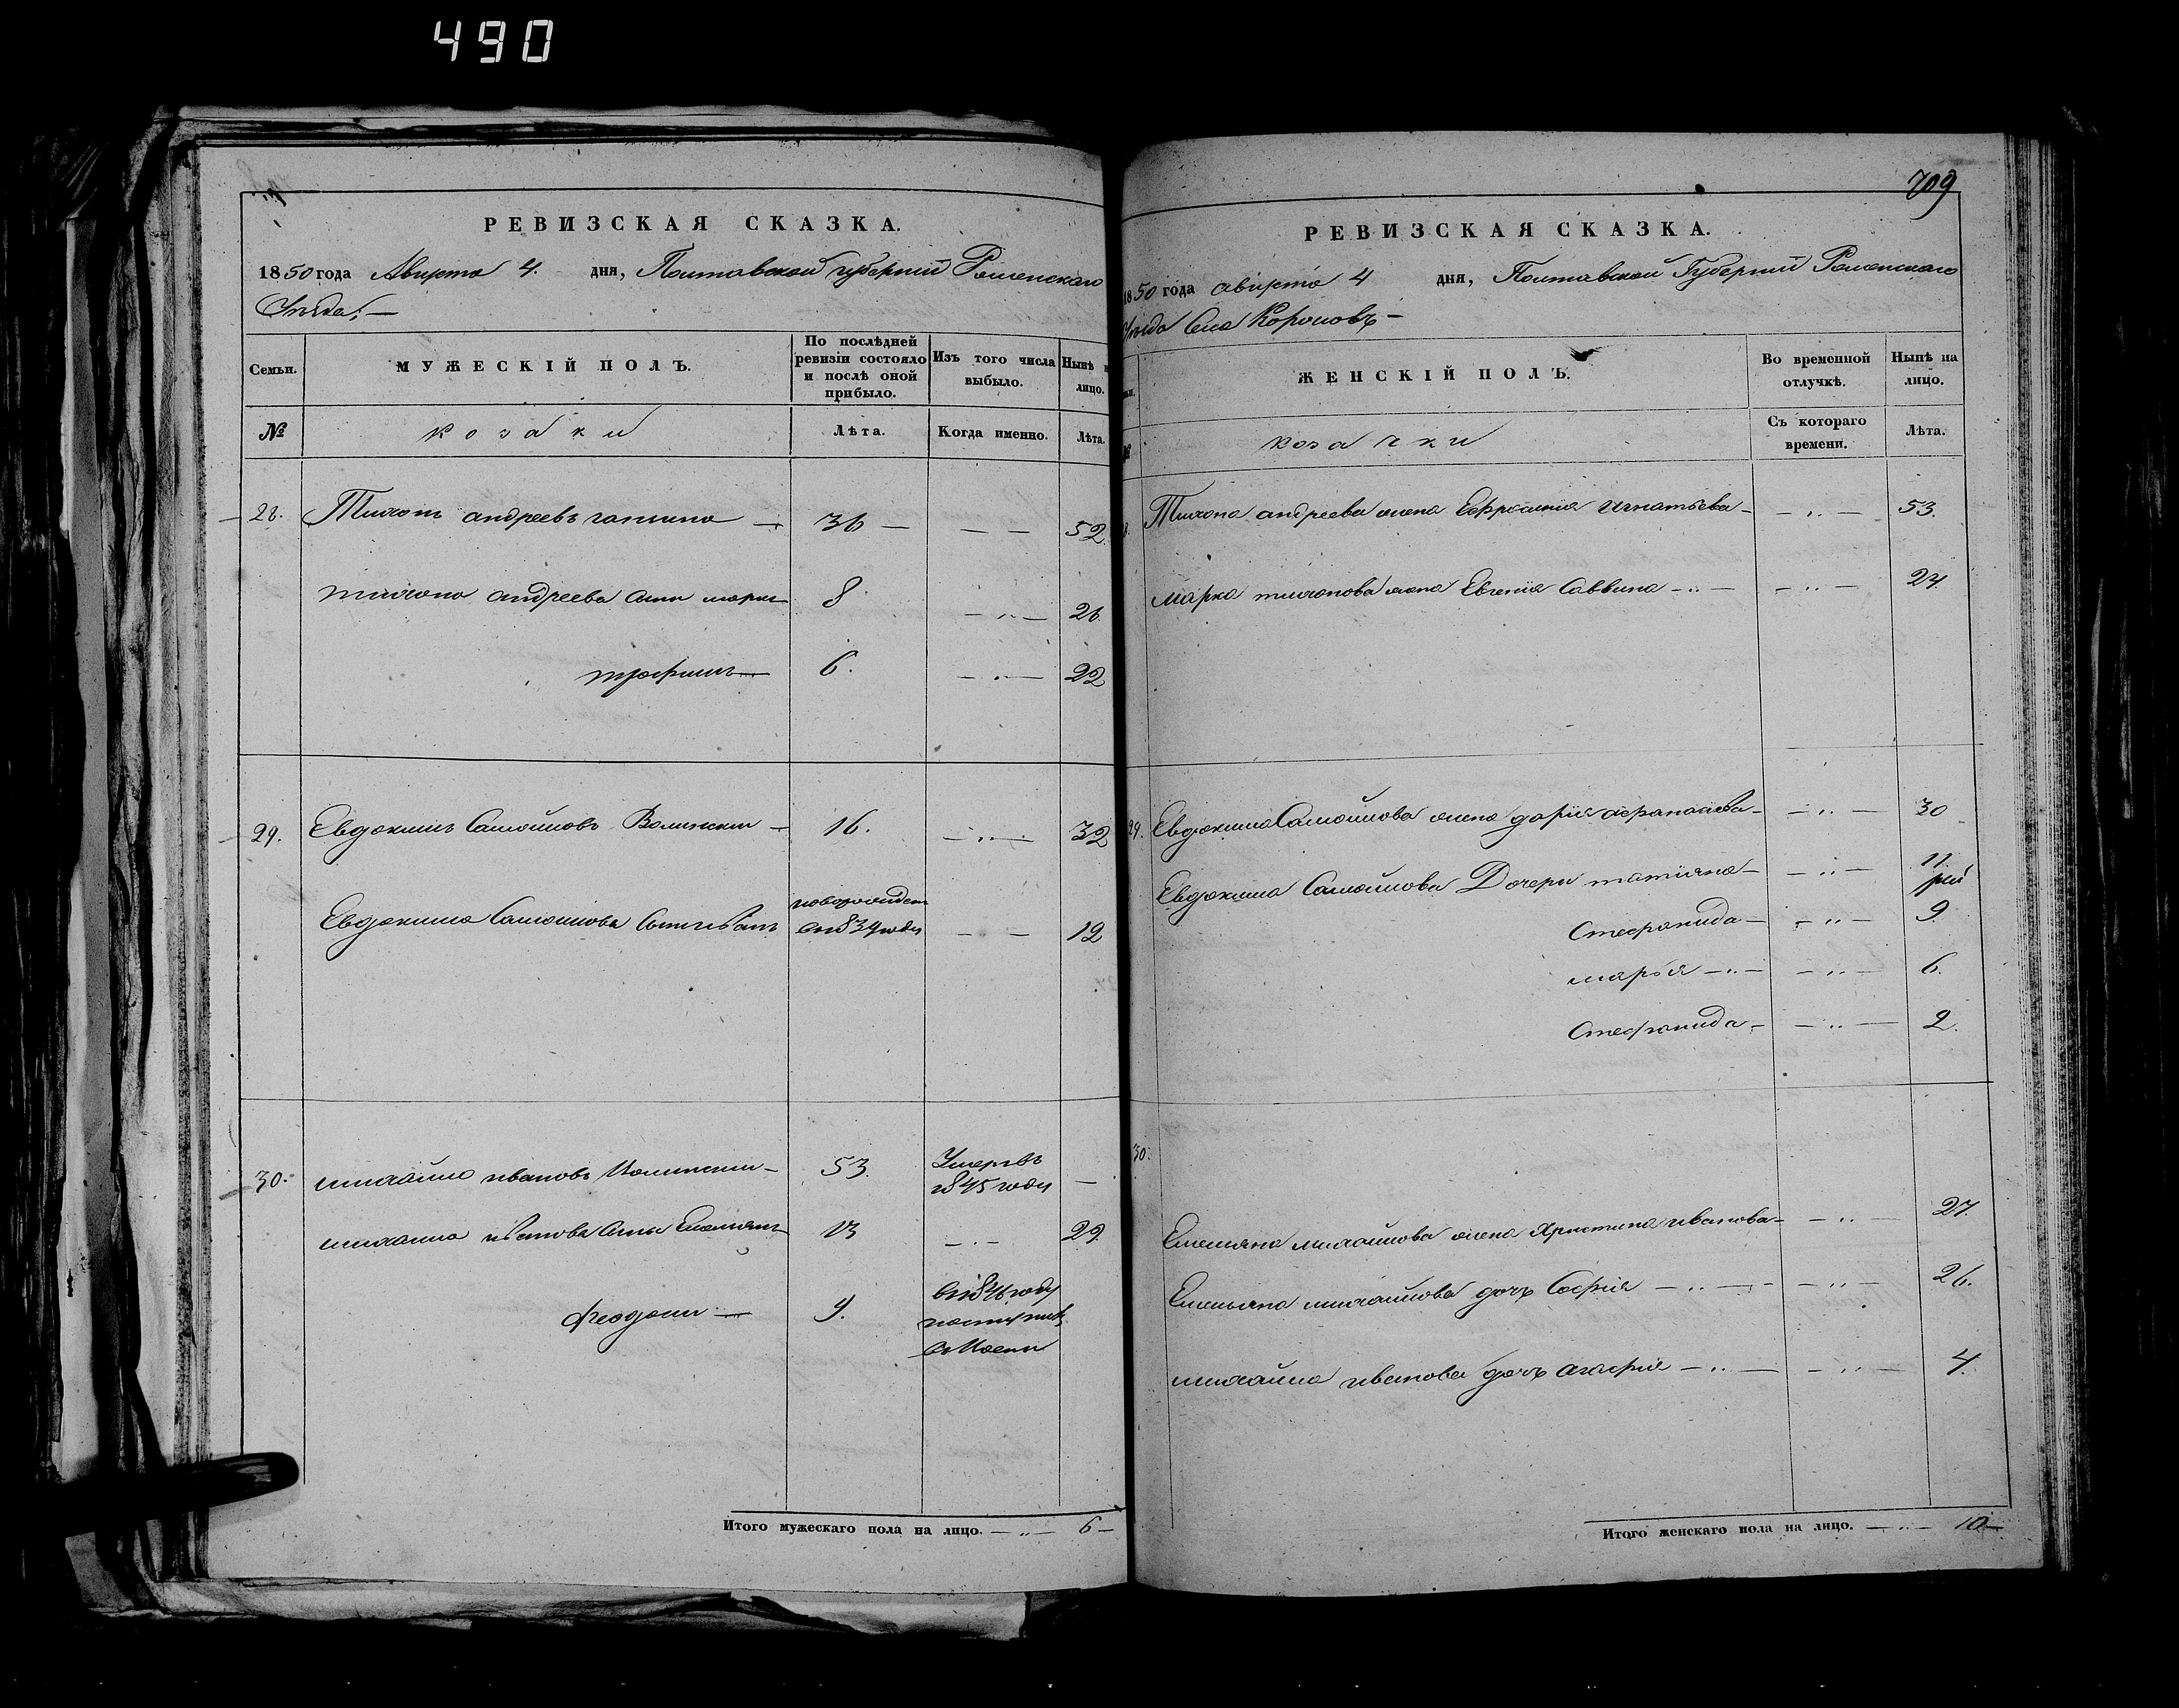 490
РЕВИЗСКАЯ СКАЗКА.
1850 года Августа 4. дня, Полтавской губернии Роменскаго
Уезда;—
Семьи. МУЖЕСКІЙ ПОЛЪ. По послѣдней ревизіи состояло и послѣ оной прибыло. Изъ того числа выбыло. Нынѣ н лицо.
№ козаки Лѣта. Когда именно. Лѣта.
28. Тихонъ андреевъ — 36 — — — 52.
тихона андреева сынъ марко 8 — „ — 26.
трофимъ — 6. — „ — 22
29. Евдокимъ Самойловъ Волинский — 16. — „ — 32
Евдокима Самойлова сынъ иванъ новорожден 839 года — — 12
30. михайло ивановъ — 53. Умеръ въ 1845 году —
михайла иванова сынъ Емельянъ 13 — „ — 29.
феодосий — 9. 1846 году
Итого мужескаго пола на лицо. — „ — 6 —
709
РЕВИЗСКАЯ СКАЗКА.
1850 года августа 4 дня, Полтавской Губернии Роменскаго
Уезда Села Корововъ —
ЖЕНСКІЙ ПОЛЪ. Во временной отлучкѣ. Нынѣ на лицо.
№ козачки Съ котораго времени. Лѣта.
Тихона андреева жена Ефросиния Игнатьева — — „ — 53.
марка тихонова жена Евгения Саввина — „ — — „ — 24
29. Евдокима Самойлова жена дария афанасиева — — „ — 30
Евдокима Самойлова Дочери татияна — — „ — 11.
Стефанида — — „ — 9.
мария — „ — — „ — 6.
Стефанида — — „ — 2.
30.
Емельяна михайлова жена Христина иванова — — „ — 27.
Емельяна михайлова дочь София — „ — — „ — 26.
михайла иванова дочь агафия — „ — — „ — 4.
Итого женскаго пола на лицо. — „ — 10 —